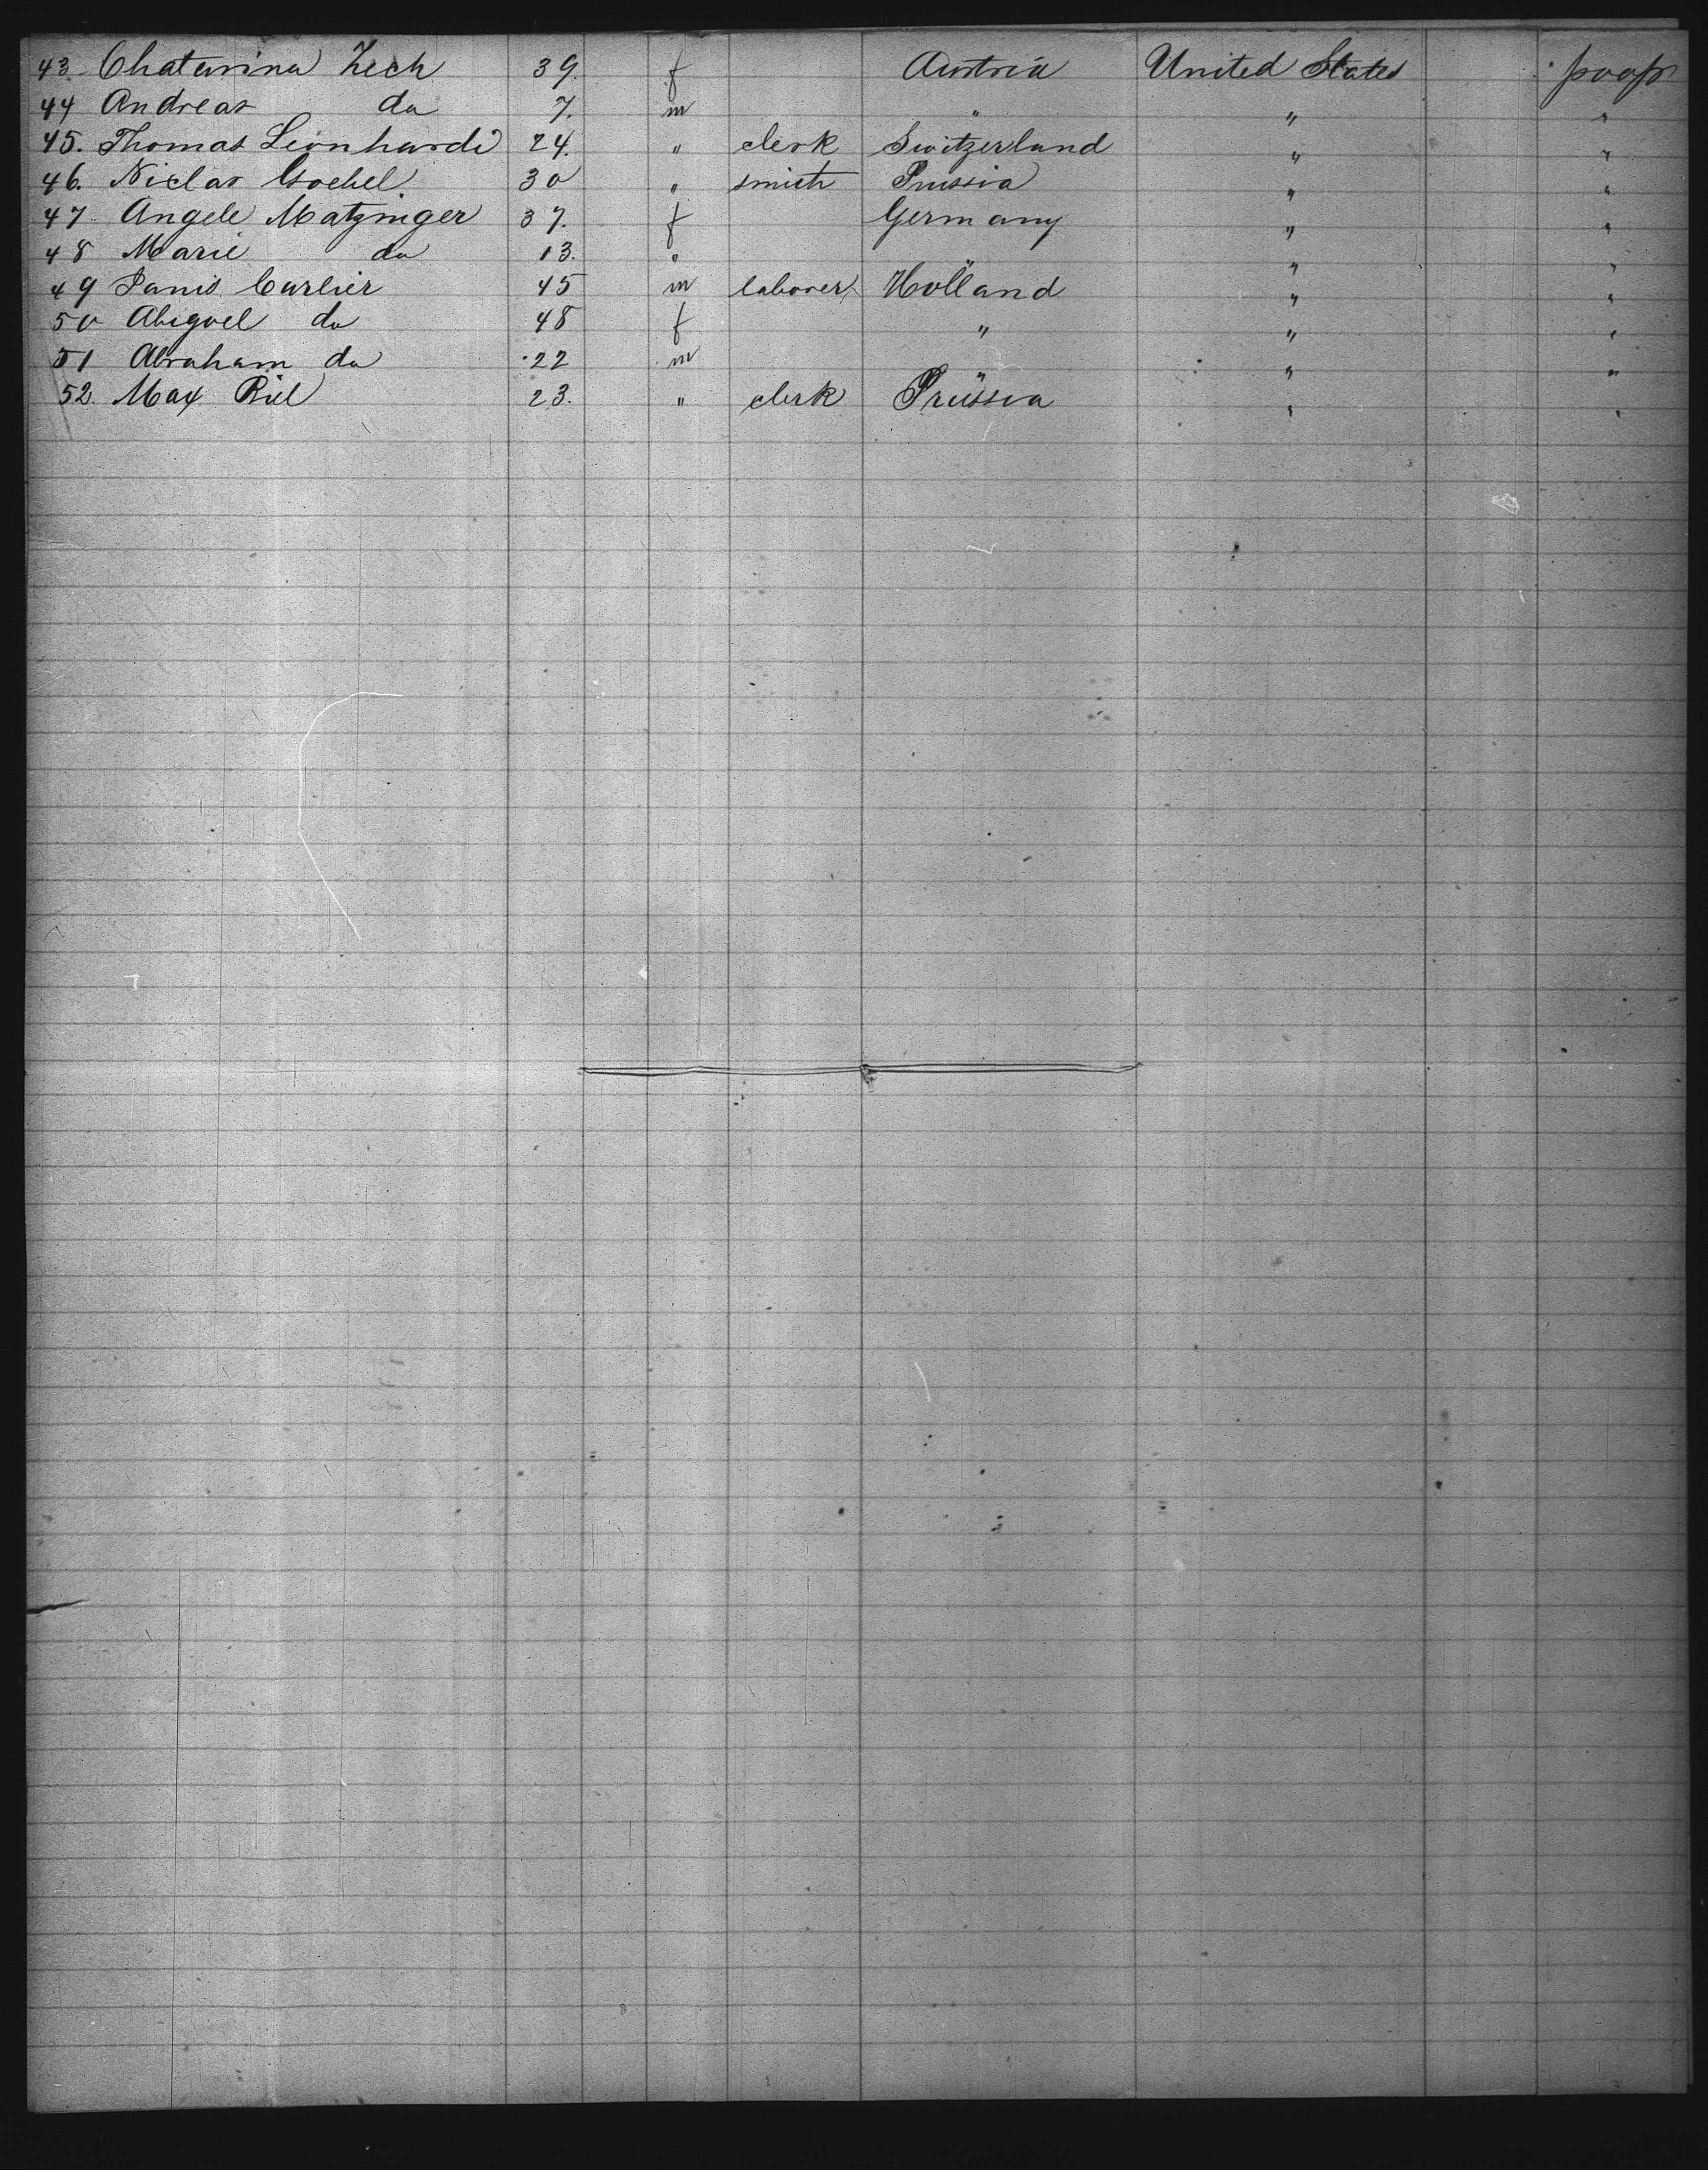 43 Chatarina Zech 39. f Austria United States poop
44 Andreas do 7. m " " "
45. Thomas Leonhardi 24. " clerk Switzerland " "
46. Niclas Goebel 30 " smith Prussia " "
47 Angele Matzinger 37. f Germany " "
48 Marie do 13. " " " "
49 Carlier 45 m laborer Holland " "
50 Abigael do 48 f " " "
51 Abraham do 22 m " " "
52. Max Riel 23. " clerk Prussia " "